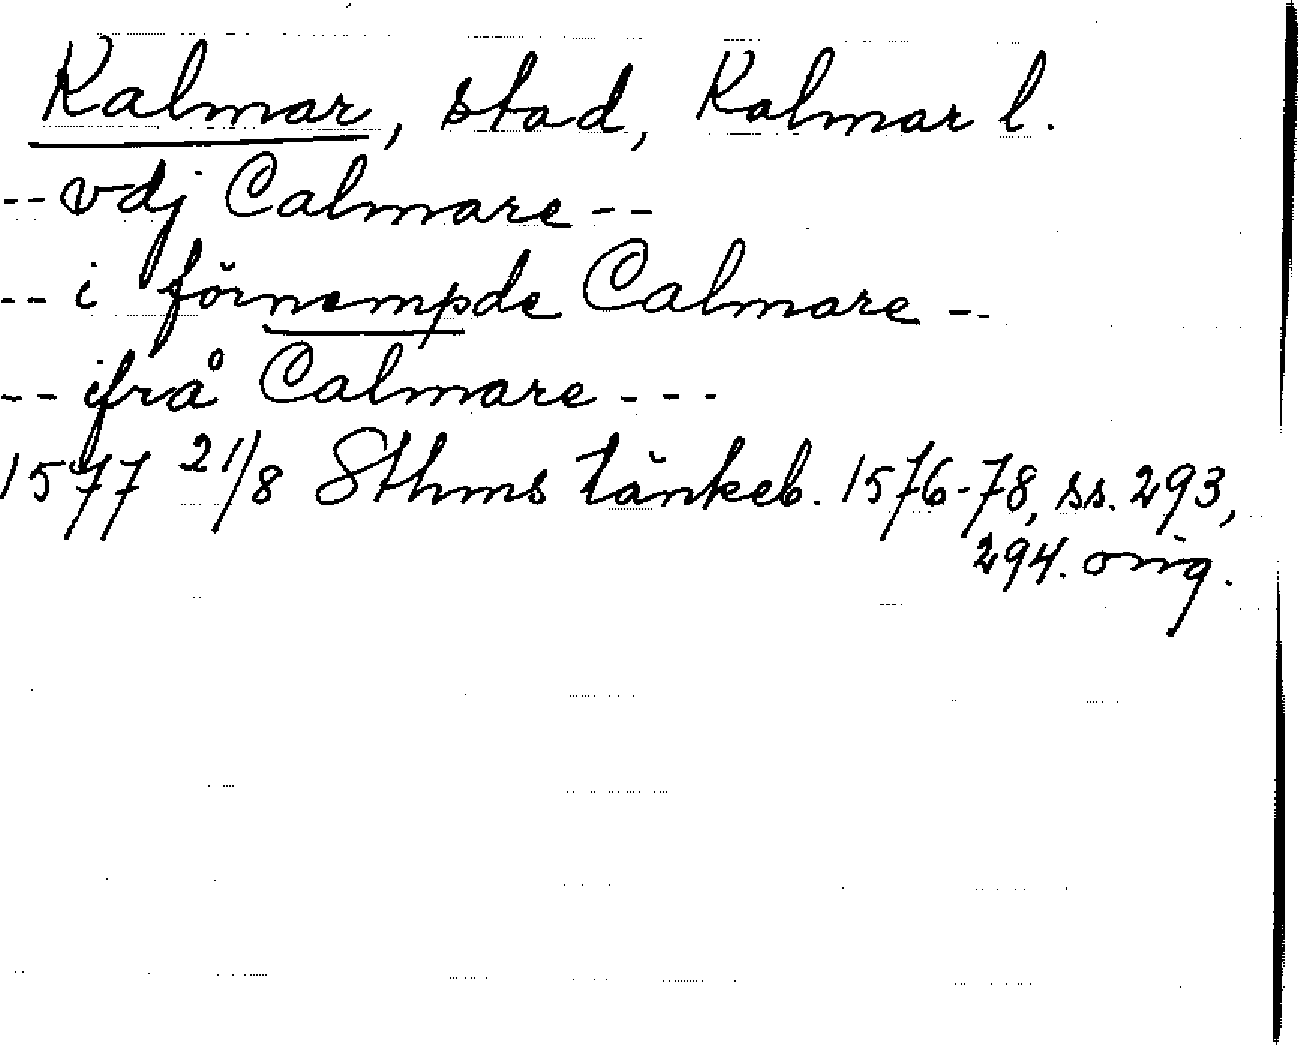 Kalmar, stad, Kalmar l.
-- vdj Calmare --
-- i förnempde Calmare --
-- ifrå Calmare ---
1577 21/8 Sthms tänkeb. 1576-78, ss. 293,
294. orig.